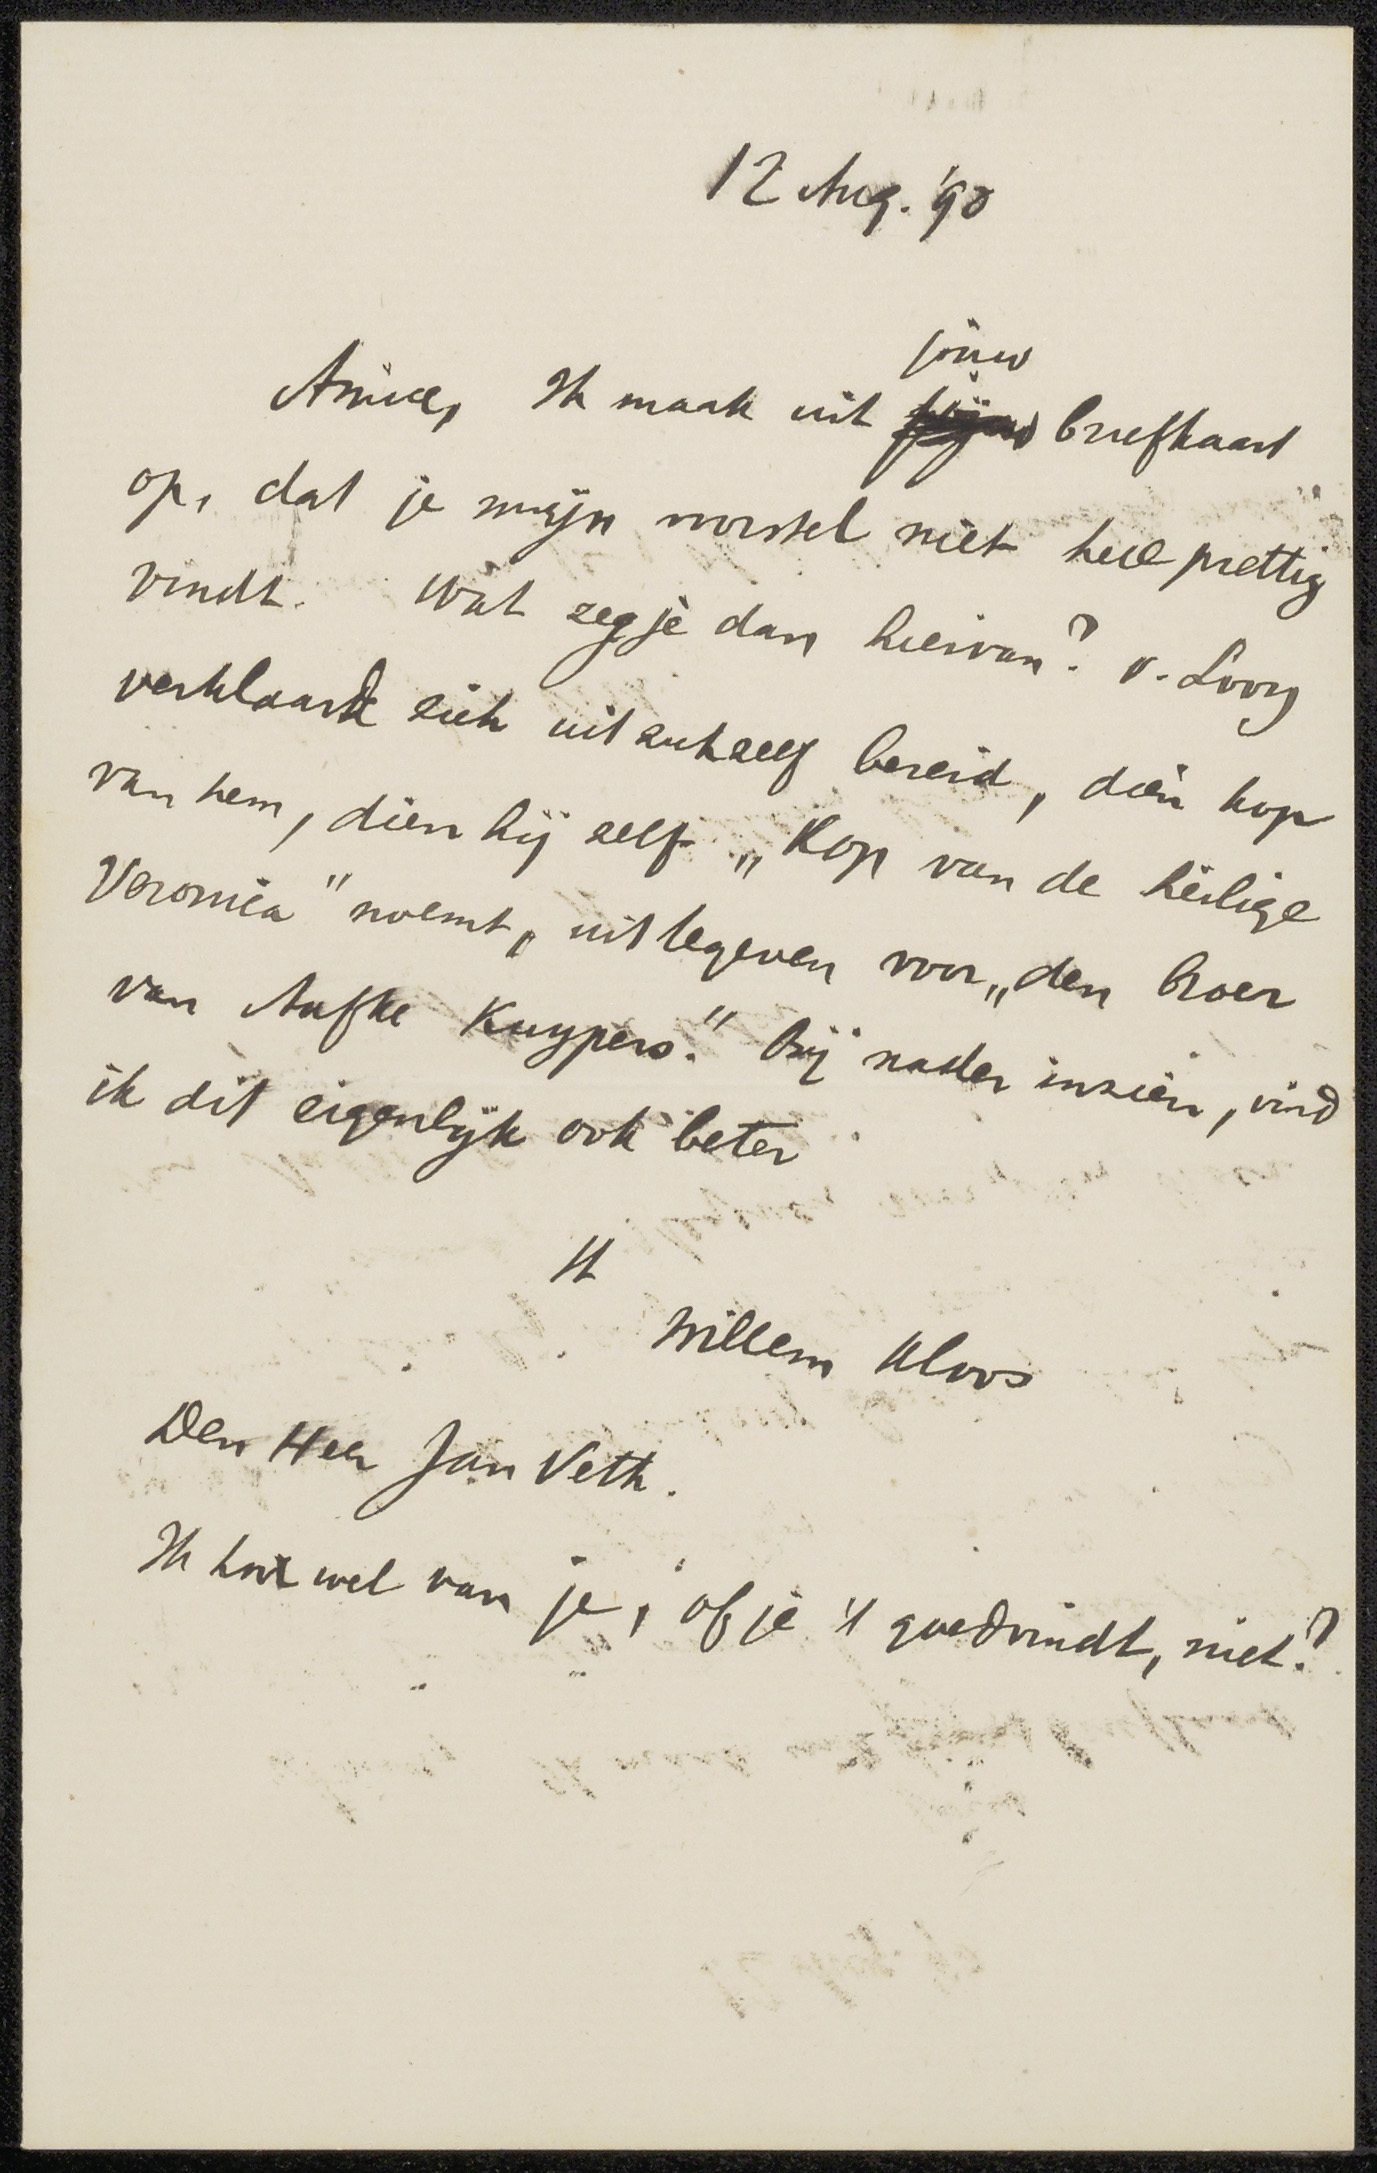 12 Aug. '90
jouw
Amice, Ik maak uit briefkaart
op, dat je mijn voorstel niet heel prettig
vindt. Wat zeg je dan hiervan? v. Looy
verklaard zich uit zichzelf bereid, dien kop
van hem, dien hij zelf „Kop van de heilige
Veronica" noemt, uit tegeven voor „den broer
van Aafke Kuypers." Bij nader inzien, vind
ik dit eigenlijk ook beter
tt
Willem Kloos
Den Heer Jan Veth.
Ik hoor wel van je, of je 't goedvindt, niet?